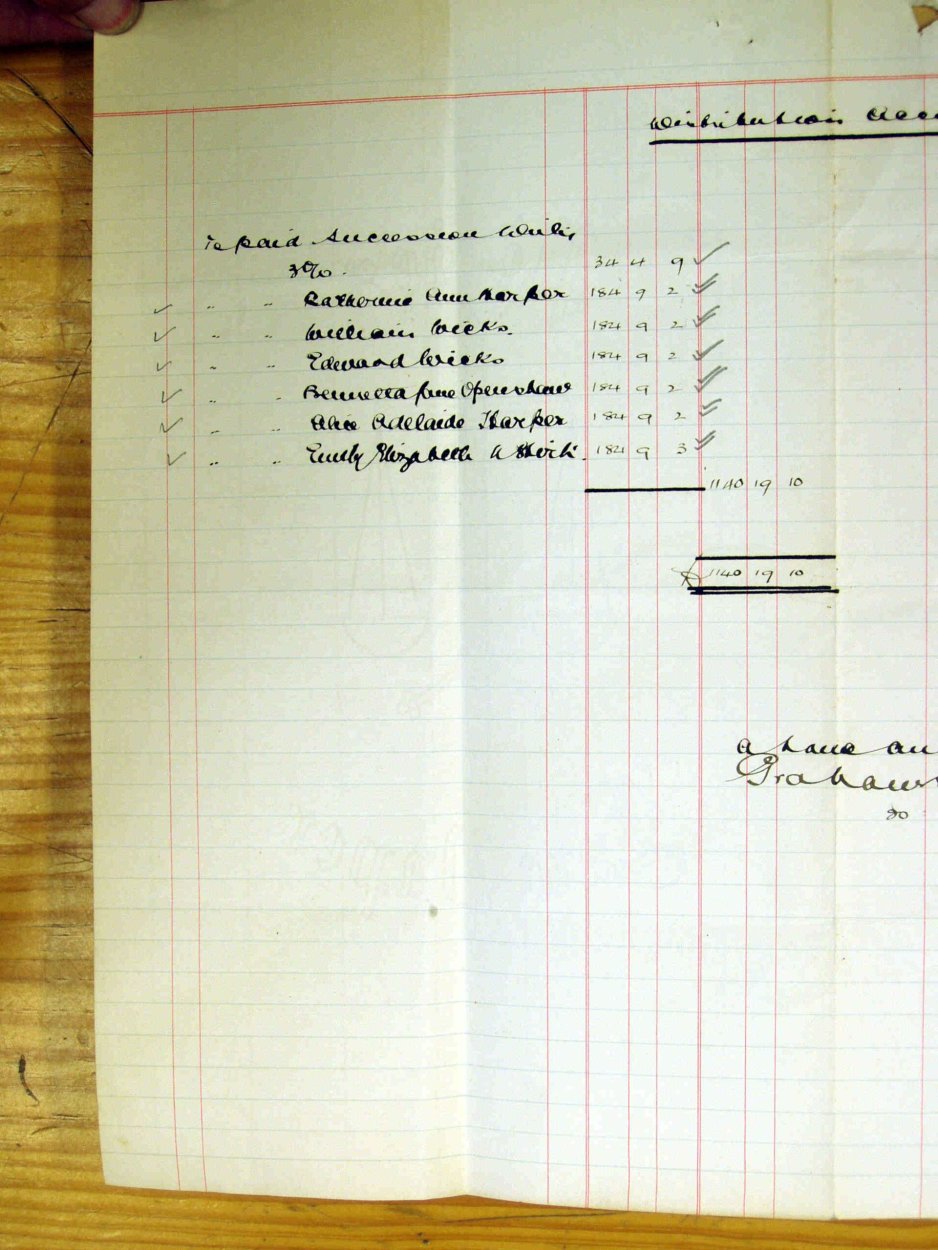 Distribution Acco
To paid Succession Duty
3% . 34 4 9
" " Katherine Ann Harper 184 9 2
" " William Wicks. 184 9 2
" " Edward Wicks 184 9 2
" " Jane Openshaw 184 9 2
" " Alice Adelaide Harper 184 9 2
" " Emily Elizabeth 184 9 3
1140 19 10
£ 1140 19 10
Graham